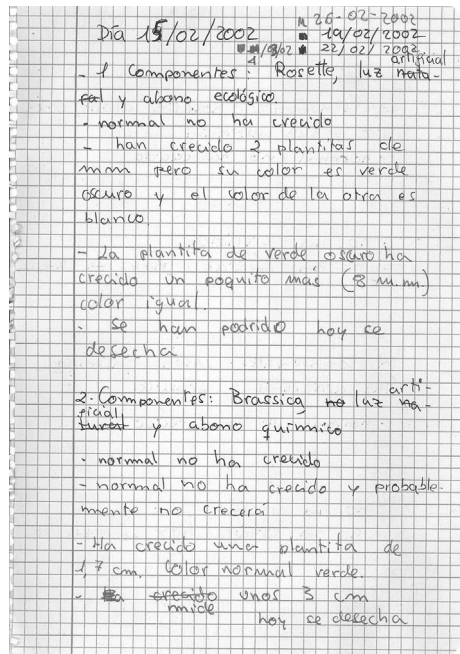 26-02-2002
Día 15/02/2002 19/02/2002
/03/02 22/02/2002
artificial
- 1 Componentes: Rosette, luz nata-
ral y abono ecológico.
- normal no ha crecido
- han crecido 2 plantitas de
mm pero su color es verde
oscuro y el color de la otra es
blanco.
- La plantita de verde oscuro ha
crecido un poquito más (8 m.m.)
color igual.
- Se han podrido hoy se
desecha
arti-
2. Componentes: Brassica no luz na-
ficial
tural y abono químnico
- normal no ha crecido
- normal no ha crecido y probable-
mente no crecerá
- Ha crecido una plantita de
1,7 cm. Color normal verde.
- crecido unos 3 cm
mide hoy se desecha